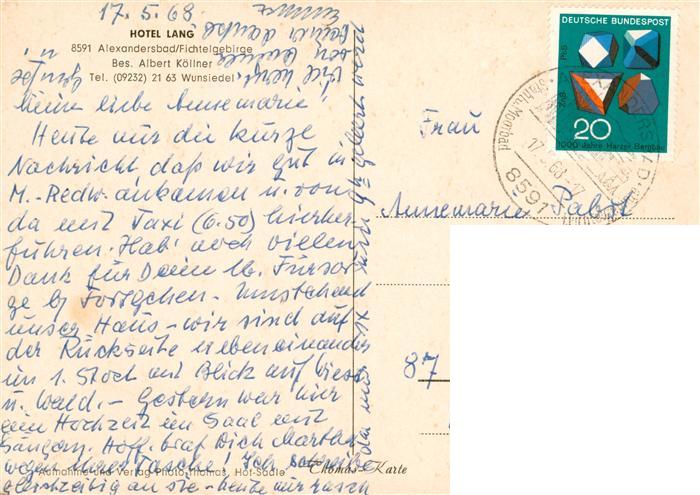 17.5.68
HOTEL LANG
8591 Alexandersbad/Fichtelgebirge
Bes. Albert Köllner
Tel. (09232) 21 63 Wunsiedel
Meine liebe Annemarie!
Heute nur die kurze
Nachricht, daß wir gut in
M.-Redw. ankamen u. von
da mit Taxi (6.50) hierher
fuhren. Hab' noch vielen
Dank für Deine lb. Fürsor
ge bz
Umstehend
unser Haus - wir sind auf
der Rückseite nebeneinander
im 1. Stock mit Blick auf Wiese
u. Wald. - Gestern war hier
eine Hochzeit im Saal mit
Sängern. Hoff. traf Dich Martha
wegen ihrer Tasche! Ich schreibe
gleichzeitig an sie - heute nur rasch
Aufnahme und Verlag Photo-Thomas, Hof-Saale
Thomas-Karte
DEUTSCHE BUNDESPOST
PbS
ZnS
20
1000 Jahre Harzer Bergbau
8591
Frau
Annemarie Pabst
87